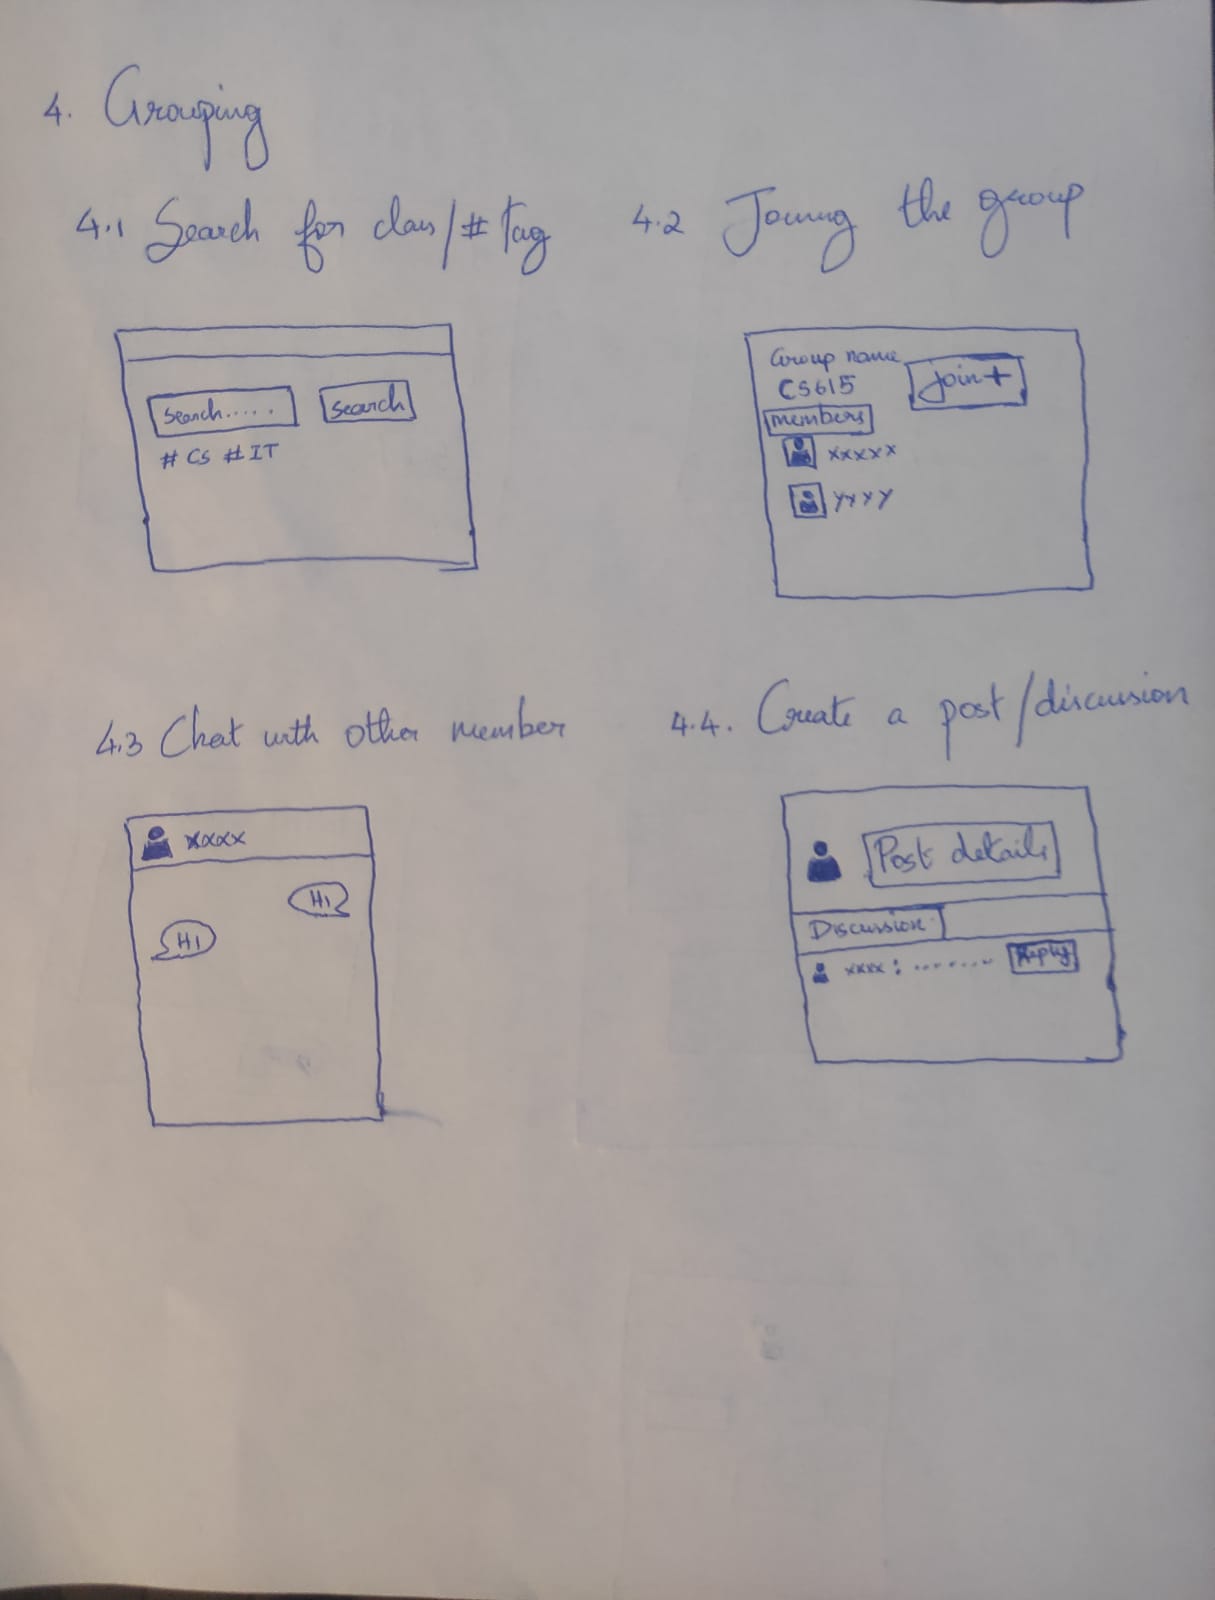 4. Grouping
4.1 Search for class/# Tag
Search.....
Search
# CS # IT
4.2 Joining the group
Group name
CS615
Join+
members
xxxxx
yxxy
4.3 Chat with other member
xxxx
Hi
Hi
4.4. Create a post/discussion
Post details
Discussion
xxxx : ........
Reply